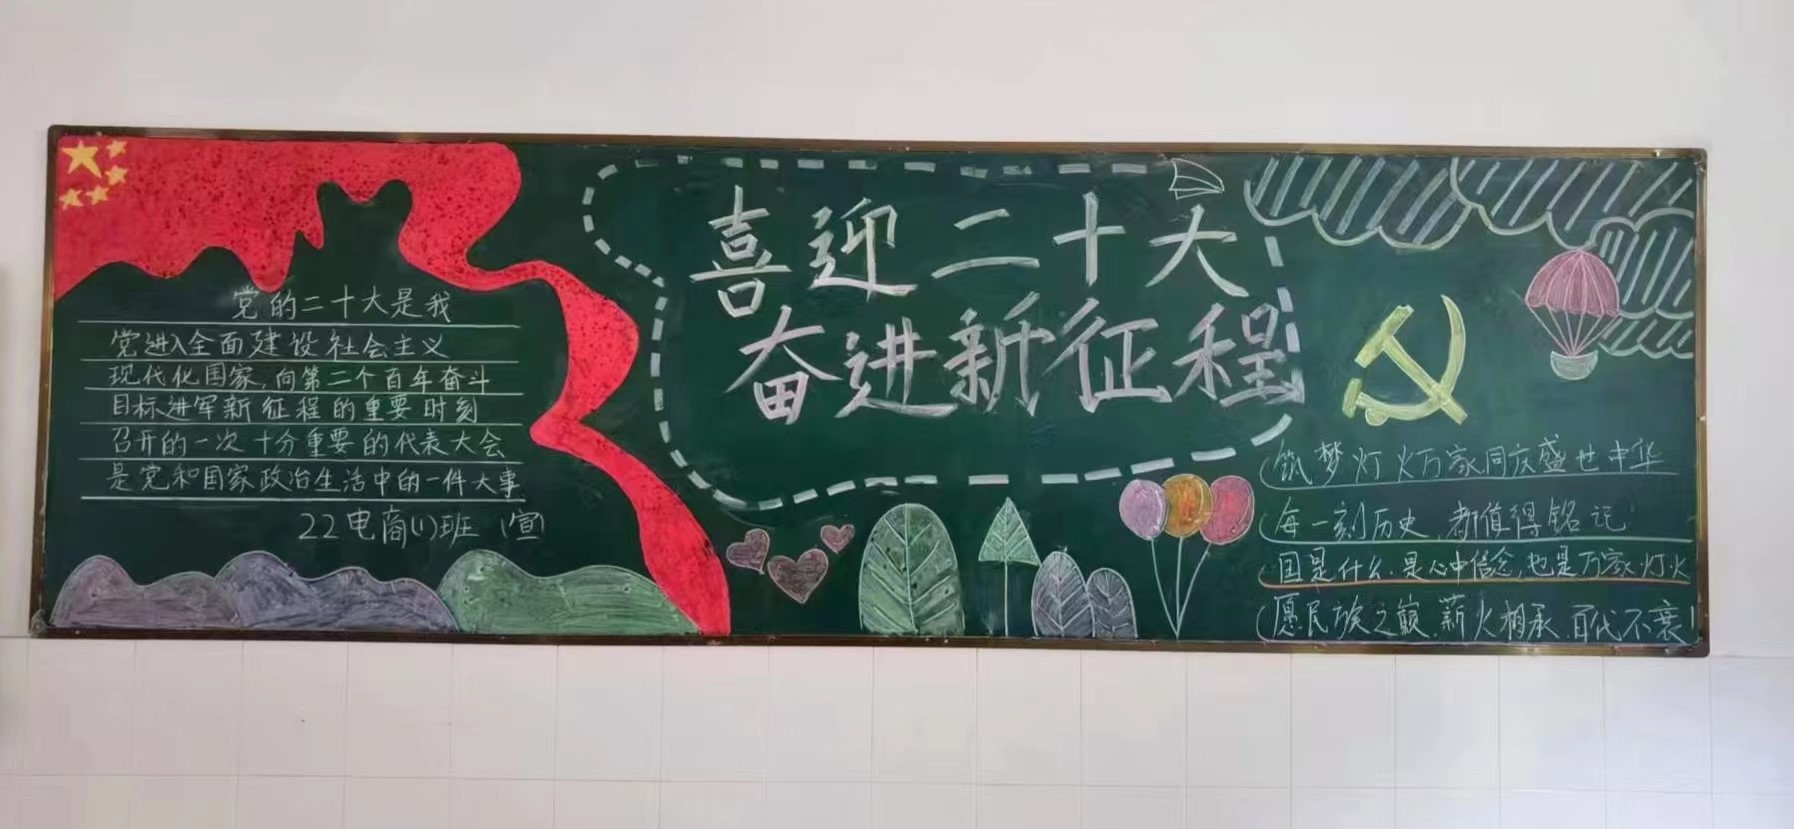 党的二十大是我
党进入全面建设社会主义
现代化国家,向第二个百年奋斗
目标进军新征程的重要时刻
召开的一次十分重要的代表大会
是党和国家政治生活中的一件大事
22电商(1)班 (宣)
喜迎二十大
奋进新征程
筑梦灯火万家同庆盛世中华
每一刻历史,都值得铭记
国是什么.是心中信念,也是万家灯火
愿民族之巅.薪火相承.百代不衰!